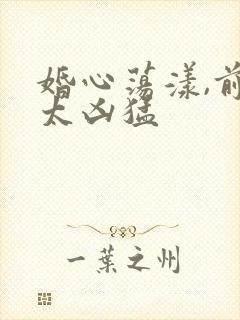 婚心荡漾,前
太凶猛
一葉之州